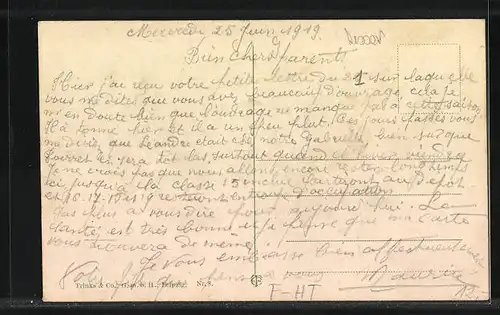 Mercredi 25 Juin 1919
Bien Chers parents
Hier j'ai reçu votre petite lettre du 21 sur laquelle
vous me dites que vous avez beaucoup d'ouvrage, cela je
m'en doute bien que l'ouvrage ne manque pas à cette saison
Il a tonné hier et il a un peu plut. Ces jours passés vous
me disiez que Léandre était chez notre Gabrielle bien sur que
en sera tot las, surtout quand
je ne crois pas que nous allons encore rester longtemps
ici jusqu'à la classe 15 inclue partiront au Dépôt
et 16-17-18 et 19 resteront d'occupation
pas plus à vous dire pour aujourd'hui. La
santé est très bonne et j'espère que ma carte
vous trouvera de même.
Je Vous embrasse bien affectueusement
Votre fils qui pense à vous
Maurice
Trinks & Co., G.m.b.H., Leipzig. Nr. 8.
F-HT
12,-